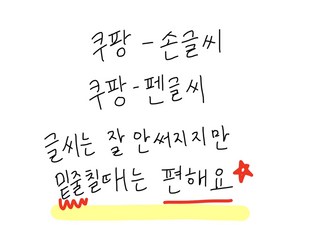 쿠팡 - 손글씨
쿠팡 - 펜글씨
글씨는 잘 안써지지만
밑줄칠때는 편해요